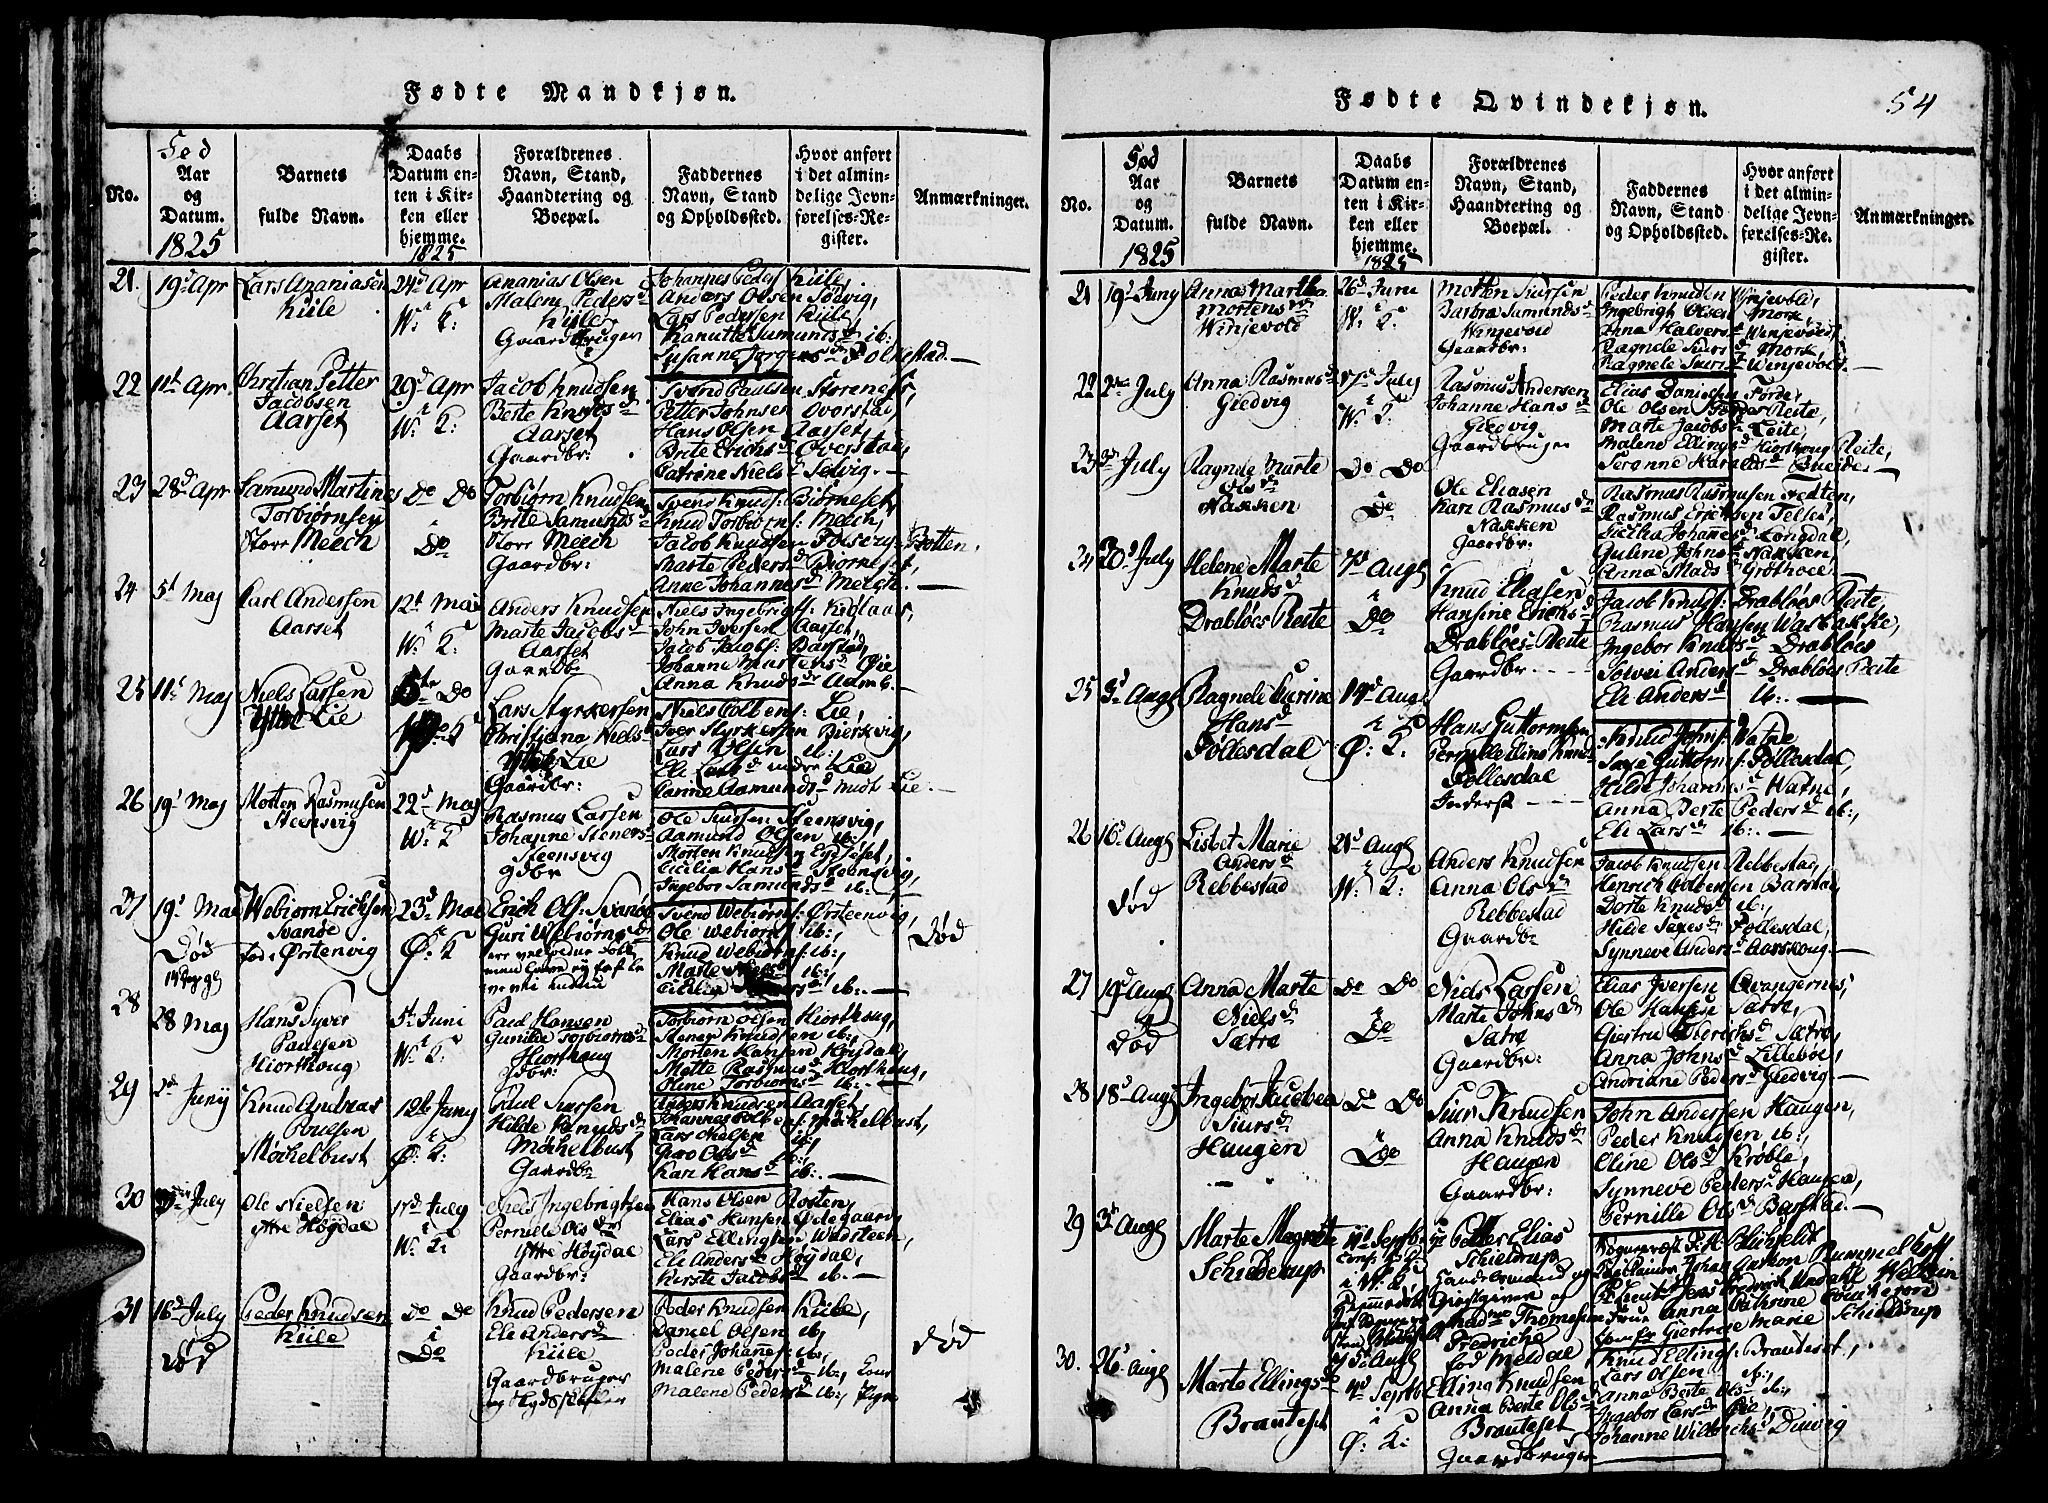 Fødte Mandkjøn.
No.
Fød
Aar
og
Datum.
1825
Barnets
fulde Navn.
Daabs
Datum en-
ten i Kir-
ken eller
hjemme.
1825
Forældrenes
Navn, Stand,
Haandtering og
Boepæl.
Faddernes
Navn, Stand
og Opholdssted.
Hvor anført
i det almin-
delige Jevn-
førelses-Re-
gister.
Anmærkninger.
21.
19d Apr
Lars Ananiasen
Kiile
24d Apr
W: K:
Ananias Olsen
Malene Peders d
Kiile
Gaardbruger
Johannes Peders Kiile,
Anders Olsen Solvig,
Lars Pedersen Kiile,
Kanutte Samunds d ib:
Susanne Jørgens d Folkestad.
22
11t Apr
Christian Petter
Jacobsen
Aarset
29d Apr
W: K:
Jacob Knudsen
Berte Knuds d
Aarset
Gaardbr:
Svend Paulsen Storenes,
Petter Johnsen Overstad,
Hans Olsen Aarset,
Brite Erichs d Overstad,
Catrine Niels d Selvig.
23
28d Apr
Samund Martines
Torbiørnsen
Store Meech
Do Do
Do
Torbiørn Knudsen
Brite Samunds d
Store Meech
Gaardbr:
Svend Knuds: Biørneset,
Knud Torbiørns: Meech,
Jacob Knudsen Folsvig Botten.
Marte Peders d Biørneset,
Anne Johannes d Meech.
24
5t Maj
Carl Andersen
Aarset
12t Mai
W: K:
Anders Knudsen
Marte Jacobs d
Aarset
Gaardbr
Niels Ingebrigts: Kidlaas,
John Iversen Aarset,
Jacob Jacobs: Barstad,
Johanne Martens d Øie
Anna Knuds dr Aamb.
25
11t Maj
Niels Larsen
Ytre Lie
Do
Lars Styrkersen
Christiana Niels d
Ytre Lie
Gaardbr:
Niels Colbens: Lie,
Iver Styrkersen Bierkvig,
Lars Olsen ib:
Eli Lars d indre Lie
Canne Aamunds d midt Lie.
26
19d Maj
Morten Rasmusen
Steensvig
22d Maj
W: K
Rasmus Larsen
Johanne Steners d
Steensvig
Gdbr
Ole Siursen Steensvig,
Aamund Olsen ib:
Morten Knudsen Eydseset,
Cicilia Hans d Steensvig,
Ingebor Samunds d ib:
27
19d Mai
Død
Webiørn Erichsen
Svande
fød i Ørstenvig
23d Mai
Ø: K
Erich Ols: Svande
Guri Webiørns d
Svend Webiørns: Ørsteenvig,
Ole Webiørns ib:,
Knud Webiørns: ib:,
Marte Niels d ib:,
ib:
Død
28
28 Maj
Hans Syver
Paulsen
Hiorthoug
5t Juni
W: K:
Paul Hansen
Gunilde Torbiørns d
Hiorthoug
Gdbr:
Torbiørn Olsen Hiorthoug,
Stener Knudsen ib:
Morten Hansen Høydal,
Mette Rasmus d Hiorthoug,
Oline Torbiørns d ib:
29
2d Junij
Knud Andreas
Poulsen
Møchelbust
12t Junij
Ø: K:
Poul Siursen
Hilde Knuds d
Møchelbust
Gaardbr
Anders Knudsen Aarset,
Johannes Colbens: Møchelbust,
Lars Nielsen ib:,
Guro Ols d ib:,
Kari Hans d ib:
30
July
Ole Nielsen
ytre Høydal
17d July
W: K:
Niels Ingebrigtsen
Pernille Ols dr
Ytre Høydal
Gaardbr:
Hans Olsen Rosten,
Elias Hansen Ødegaard,
Lars Ellingsen Wadsteen,
Eli Anders d Høydal,
Kirste Jacobs d ib.
31
16d July
Død
Peder Knudsen
Kiile
Do Do
i
Do
Knud Pedersen
Eli Anders d
Kiile
Gaardbruger
og Skydsskaffer
Peder Knudsen Kiile,
Daniel Olsen ib,
Peder Johanes: ib:,
Malene Peders d ib:, Kone
Malene Peders d ib:, Pige
Død
Fødte Qvindekjøn.
54
No.
Fød
Aar
og
Datum.
1825
Barnets
fulde Navn.
Daabs
Datum en-
ten i Kir-
ken eller
hjemme.
1825
Forældrenes
Navn, Stand,
Haandtering og
Boepæl.
Faddernes
Navn, Stand
og Opholdssted.
Hvor anført
i det almin-
delige Jevn-
førelses-Re-
gister.
Anmærkninger.
21
19d Juny
Anna Martha
Mortens dr
Winjevold
26d June
W. K.
Morten Siursen
Barbra Samunds d
Winjevold
Gaardbr:
Peder Knudsen Winjevold,
Ingebrigt Olsen Mork,
Anna Halvers d Winjevold,
Ragnele Siurs d Mork,
Ragnele Siurs d Winjevold.
22
2den July
Anna Rasmus d
Giedvig
17d July
W. K:
Rasmus Andersen
Johanne Hans d
Giedvig
Gaardbruger
Elias Danielsen Førde,
Ole Olsen Reite,
Marte Jacobs d Leite,
Malene Ellings d Hiorthoug Reite,
Seranne Haralds d Bneide.
23
3d July
Ragnele Marte
Ols dr
Nakken
Do Do
Do
Ole Eliasen
Kari Rasmus d
Nakken
Gaardbr:
Rasmus Rasmusen Tvedten,
Rasmus Ericksen Telles,
Giertha Johannes d Longdal,
Guline Johns d Nakken
Anna Mads d Grothole
24
30d July
Helene Marte
Knuds d
Drabløes Reite
7d Augs
i
Do
Knud Eliasen
Hansine Erichs d
Drabløes Reite
Gaardbr.
Jacob Knuds: Drabløes Reite,
Rasmus Hansen Wasbakke,
Ingebor Knuds d Drabløes
Solvei Anders d Drabløes Reite
Eli Anders d ib.
25
3d Augs
Ragnele Gurine
Hans d
Follesdal
14d Augs
Ø: K:
Hans Guttormsen
Pernille Eline Knuds d
Follesdal
Inderst
Knud Johns: Watne
Saxe Guttorms: Follesdal,
Hilde Johannes d Watne,
Anna Berte Peders d ib:,
Eli Lars d ib:
26
16d Augs
Død
Lisbet Marie
Anders d
Rebbestad
21d Augs
W: K:
Anders Knudsen
Anna Ols dr
Rebbestad
Gaardbr
Jacob Knudsen Rebbestad,
Henrich Colbensen Barstad,
Dorte Knuds d ib:,
Hilde Saxes d Follesdal,
Synneve Anders d Aarskoug.
27
19d Augs
Død
Anna Marte
Niels d
Sætre
Do Do
Do
Niels Larsen
Marte Johns d
Sætre
Gaardbr:
Elias Iversen Qvangernes,
Ole Hansen Sætre,
Giertru Didrichs d Sætre,
Anna Johns d Lillebøe,
Andriane Peders d Giedvig
28
18d Augs
Ingebor Jacobea
Siurs d
Haugen
Do Do
Do
Siur Knudsen
Anna Knuds d
Haugen
Gaardbr:
John Andersen Haugen,
Peder Knudsen ib:,
Oline Ols d Krøble,
Synneve Peders d Haugen,
Pernille Ols d Barstad.
29
3d Augs
Marte Magrete
Schielderup
11d Septb
i W: K:
Petter Elias
Schielderup
Handelsmand og
Giestgiver og
Mad. Thomesen
Fredriche
fød Meldal
Johan Aarkon Rummelhoff.
Frue Anna Cathrine
Jomfr Giertrue Marie Schielderup
30.
26d Augs
Marte Ellings d
Brauteset
4d Septb
i
Ø: K:
Elling Knudsen
Anna Berte Ols d
Brauteset
Gaardbruger
Knud Ellings: Brauteset,
Lars Olsen ib:,
Anna Berte Ols d ib:,
Ingebor Lars d
Johanne Wilrichs d Diuvig